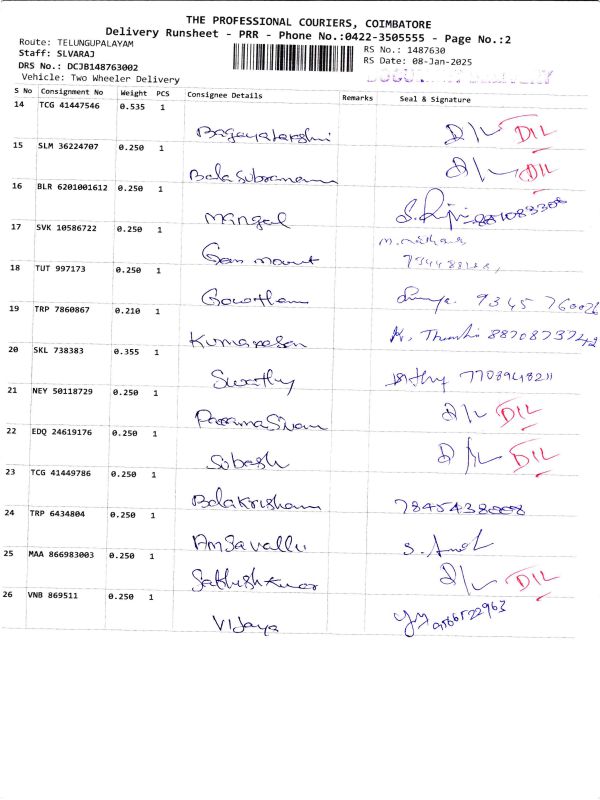 THE PROFESSIONAL COURIERS, COIMBATORE
Delivery Runsheet - PRR - Phone No.:0422-3505555 - Page No.:2
Route: TELUNGUPALAYAM
RS No.: 1487630
Staff: SLVARAJ
RS Date: 08-Jan-2025
DRS No.: DCJB148763002
Vehicle: Two Wheeler Delivery
S No Consignment No Weight PCS Consignee Details Remarks Seal & Signature
14 TCG 41447546 0.535 1
D/L DIL
15 SLM 36224707 0.250 1
Balasubramani D/L DIL
16 BLR 6201001612 0.250 1
Mangal
17 SVK 10586722 0.250 1
18 TUT 997173 0.250 1
Gowtham 9345 760026
19 TRP 7860867 0.210 1
Kumaresan 8870873742
20 SKL 738383 0.355 1
Swathy 7708948211
21 NEY 50118729 0.250 1
ParamaSivam D/L DIL
22 EDQ 24619176 0.250 1
Subash D/L DIL
23 TCG 41449786 0.250 1
Balakrishnan 7845438008
24 TRP 6434804 0.250 1
25 MAA 866983003 0.250 1
Sathishkumar D/L DIL
26 VNB 869511 0.250 1
Vijaya 9566522963